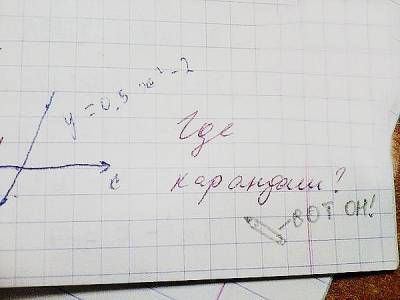 y = 0,5 x² - 2
Где
карандаш?
x
- ВОТ ОН!